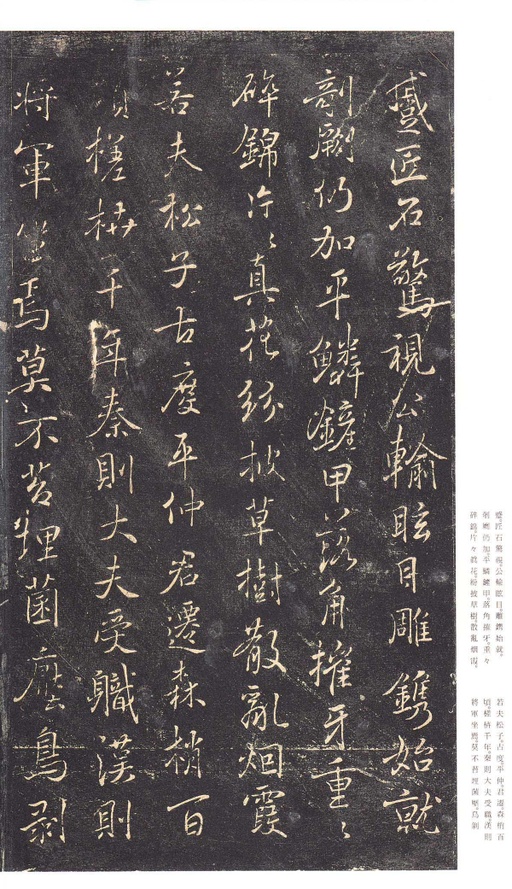 蹙匠石驚視公輸眩目雕鐫始就
剞劂仍加平鱗鏟甲落角摧牙重々
碎錦片々真花紛披草樹散亂烟霞
若夫松子古度平仲君遷森梢百
頃槎枿千年秦則大夫受職漢則
將軍坐焉莫不苔埋菌壓鳥剥
蹙。匠石驚視。公輸眩目。雕鐫始就。
剞劂仍加。平鱗鏟甲。落角摧牙。重々
碎錦。片々真花。紛披草樹。散亂烟霞。
若夫松子。古度。平仲。君遷。森梢百
頃。槎枿千年。秦則大夫受職。漢則
將軍坐焉。莫不苔埋菌壓。鳥剥